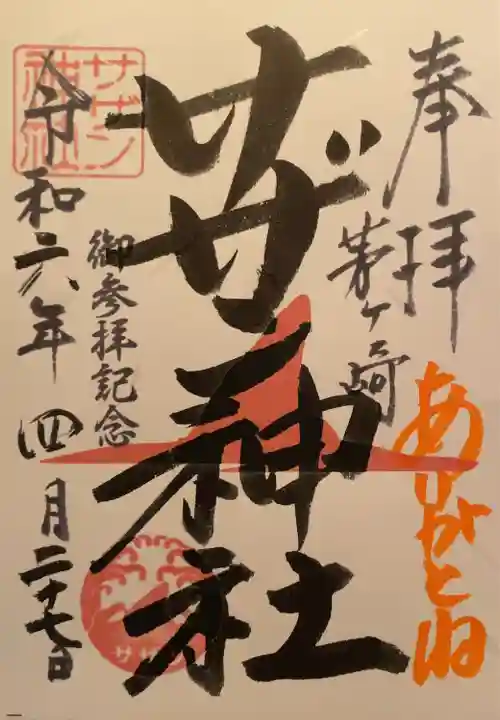 奉拝
茅ヶ崎
ありがとね
サザン神社
御参拝記念
令和六年四月二十七日
サザン
神社
サザン